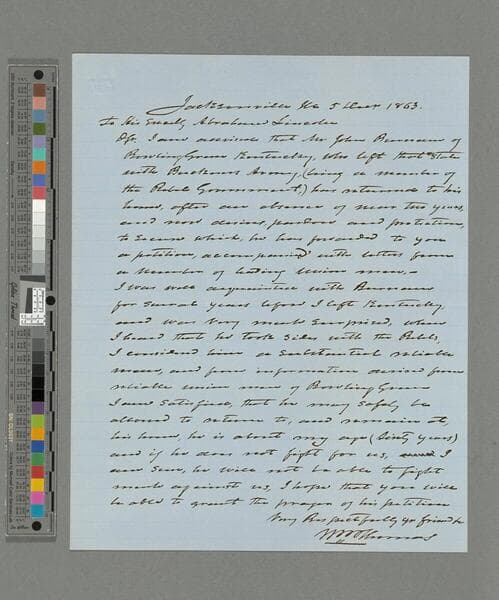 Jacksonville Ills 5 Decr 1863.
To His Excelly Abraham Lincoln
I am advised that Mr John Burnam of
Bowling Green Kentucky, who left that State
with Buckners Army, (being a member of
the Rebel Government,) has returned to his
home, after an absence of near two years,
and now desires, pardon and protection,
to secure which, he has forwarded to you
a petition, accompanied with letters from
a number of leading Union men,—
I was well acquainted with Burnam
for several years before I left Kentucky,
and was very much surprised, when
I heard that he took sides with the Rebels,
I considered him a substantial reliable
man, and from information derived from
reliable union men of Bowling Green
I am satisfied, that he may safely be
allowed to return to, and remain at,
his home, he is about my age (sixty years)
and if he does not fight for us, I
am sure, he will not be able to fight
much against us, I hope that you will
be able to grant the prayer of his petition
Very Respectfully yr friend &c
Wm Thomas